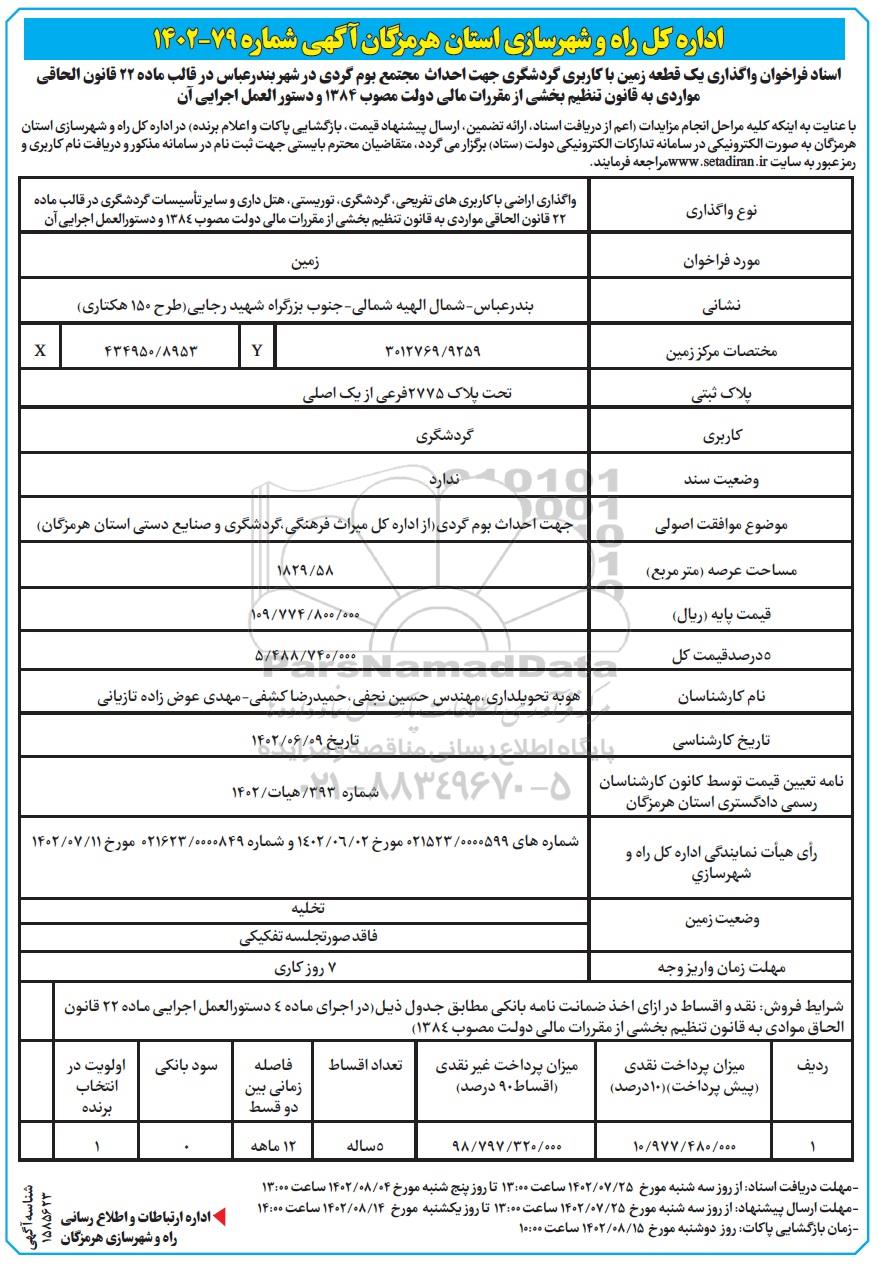 اداره کل راه و شهرسازی استان هرمزگان آگهی شماره ۷۹-۱۴۰۲
اسناد فراخوان واگذاری یک قطعه زمین با کاربری گردشگری جهت احداث مجتمع بوم گردی در شهر بندرعباس در قالب ماده ۲۲ قانون الحاقی
مواردی به قانون تنظیم بخشی از مقررات مالی دولت مصوب ۱۳۸۴ و دستور العمل اجرایی آن
با عنایت به اینکه کلیه مراحل انجام مزایدات (اعم از دریافت اسناد، ارائه تضمین، ارسال پیشنهاد قیمت، بازگشایی پاکات و اعلام برنده) در اداره کل راه و شهرسازی استان
هرمزگان به صورت الکترونیکی در سامانه تدارکات الکترونیکی دولت (ستاد) برگزار می گردد، متقاضیان محترم بایستی جهت ثبت نام در سامانه مذکور و دریافت نام کاربری و
رمز عبور به سایت www.setadiran.ir مراجعه فرمایند.
نوع واگذاری
واگذاری اراضی با کاربری های تفریحی، گردشگری، توریستی، هتل داری و سایر تأسیسات گردشگری در قالب ماده
۲۲ قانون الحاقی مواردی به قانون تنظیم بخشی از مقررات مالی دولت مصوب ۱۳۸۴ و دستورالعمل اجرایی آن
مورد فراخوان
زمین
نشانی
بندرعباس-شمال الهیه شمالی-جنوب بزرگراه شهید رجایی(طرح ۱۵۰ هکتاری)
مختصات مرکز زمین
۳۰۱۲۷۶۹/۹۲۵۹
Y
۴۳۴۹۵۰/۸۹۵۳
X
پلاک ثبتی
تحت پلاک ۲۷۷۵فرعی از یک اصلی
کاربری
گردشگری
وضعیت سند
ندارد
موضوع موافقت اصولی
جهت احداث بوم گردی(از اداره کل میراث فرهنگی،گردشگری و صنایع دستی استان هرمزگان)
مساحت عرصه (متر مربع)
۱۸۲۹/۵۸
قیمت پایه (ریال)
۱۰۹/۷۷۴/۸۰۰/۰۰۰
۵درصدقیمت کل
۵/۴۸۸/۷۴۰/۰۰۰
ParsNamadData
نام کارشناسان
هوبه تحویلداری،مهندس حسین نجفی،حمیدرضا کشفی-مهدی عوض زاده تازیانی
تاریخ کارشناسی
تاریخ ۱۴۰۲/۰۶/۰۹
پایگاه اطلاع رسانی مناقصه و مزایده
نامه تعیین قیمت توسط کانون کارشناسان
رسمی دادگستری استان هرمزگان
شماره ۳۹۳/هیات/۱۴۰۲
۰۲۱-۸۸۳۴۹۶۷۰-۵
رأی هیأت نمایندگی اداره کل راه و
شهرسازي
شماره های ۰۲۱۵۲۳/۰۰۰۰۵۹۹ مورخ ۱۴۰۲/۰۶/۰۲ و شماره ۰۲۱۶۲۳/۰۰۰۰۸۴۹ مورخ ۱۴۰۲/۰۷/۱۱
وضعیت زمین
تخلیه
فاقد صورتجلسه تفکیکی
مهلت زمان واریز وجه
۷ روز کاری
شرایط فروش: نقد و اقساط در ازای اخذ ضمانت نامه بانکی مطابق جدول ذیل(در اجرای ماده ٤ دستورالعمل اجرایی ماده ۲۲ قانون
الحاق موادی به قانون تنظیم بخشی از مقررات مالی دولت مصوب ۱۳۸٤)
ردیف
میزان پرداخت نقدی
(پیش پرداخت)(۱۰درصد)
میزان پرداخت غیر نقدی
(اقساط۹۰ درصد)
تعداد اقساط
فاصله
زمانی بین
دو قسط
سود بانکی
اولویت در
انتخاب
برنده
۱
۱۰/۹۷۷/۴۸۰/۰۰۰
۹۸/۷۹۷/۳۲۰/۰۰۰
۵ساله
۱۲ ماهه
۰
۱
-مهلت دریافت اسناد: از روز سه شنبه مورخ ۱۴۰۲/۰۷/۲۵ ساعت ۱۳:۰۰ تا روز پنج شنبه مورخ ۱۴۰۲/۰۸/۰۴ ساعت ۱۳:۰۰
-مهلت ارسال پیشنهاد: از روز سه شنبه مورخ ۱۴۰۲/۰۷/۲۵ ساعت ۱۳:۰۰ تا روز یکشنبه مورخ ۱۴۰۲/۰۸/۱۴ ساعت ۱۴:۰۰
-زمان بازگشایی پاکات: روز دوشنبه مورخ ۱۴۰۲/۰۸/۱۵ ساعت ۱۰:۰۰
اداره ارتباطات و اطلاع رسانی
راه و شهرسازی هرمزگان
شناسه آگهی
۱۵۸۵۶۲۳